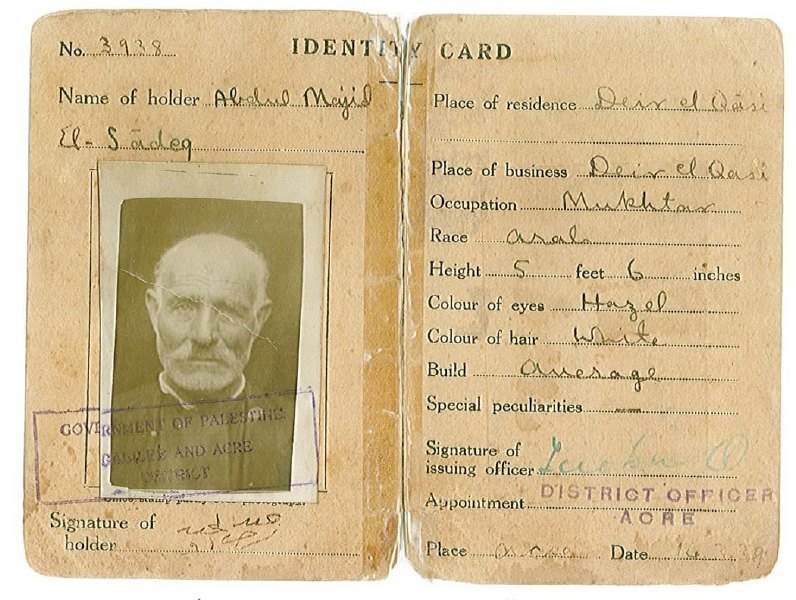 No. 3938
IDENTITY CARD
Name of holder Abdul Majid
El-Sādeq
GOVERNMENT OF PALESTINE
GALILEE AND ACRE
DISTRICT
Signature of
holder
Place of residence Deir el Qāsi
Place of business Deir el Qasi
Occupation Mukhtar
Race arab
Height 5 feet 6 inches
Colour of eyes Hazel
Colour of hair White
Build average
Special peculiarities —
Signature of
issuing officer
Appointment DISTRICT OFFICER
ACRE
Place Acre Date